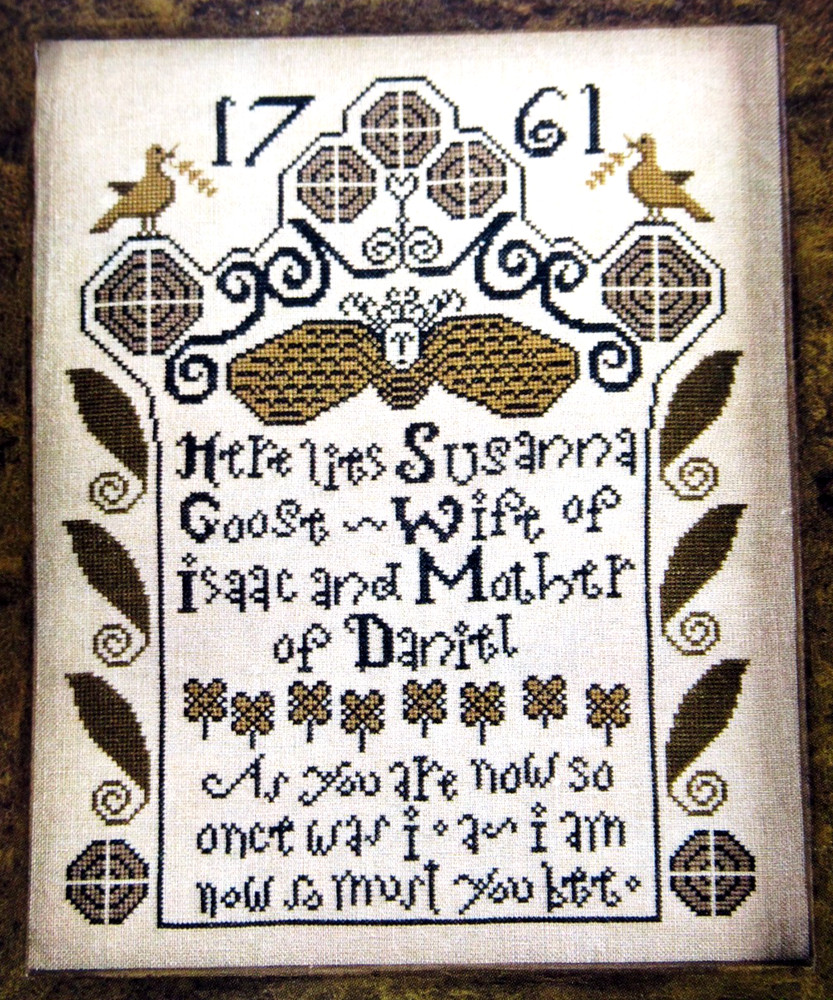 1761
Here lies Susanna
Goose ~ Wife of
isaac and Mother
of Daniel
As you are now so
once was i · as i am
now so must you bee.